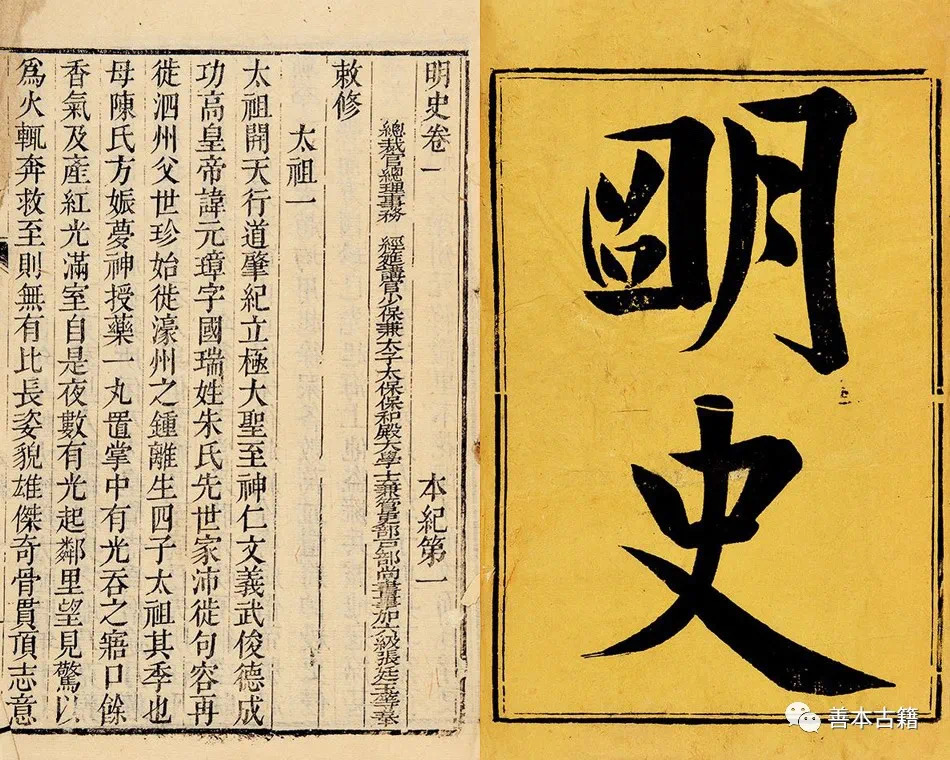 明史
明史卷一 本紀第一
總裁官總理事務 經筵講官少保兼太子太保保和殿大學士兼管吏部戶部尚書事加六級張廷玉等奉
敕修
太祖一
太祖開天行道肇紀立極大聖至神仁文義武俊德成
功高皇帝諱元璋字國瑞姓朱氏先世家沛徙句容再
徙泗州父世珍始徙濠州之鍾離生四子太祖其季也
母陳氏方娠夢神授藥一丸置掌中有光吞之寤口餘
香氣及產紅光滿室自是夜數有光起鄰里望見驚以
為火輒奔救至則無有比長姿貌雄傑奇骨貫頂志意
善本古籍